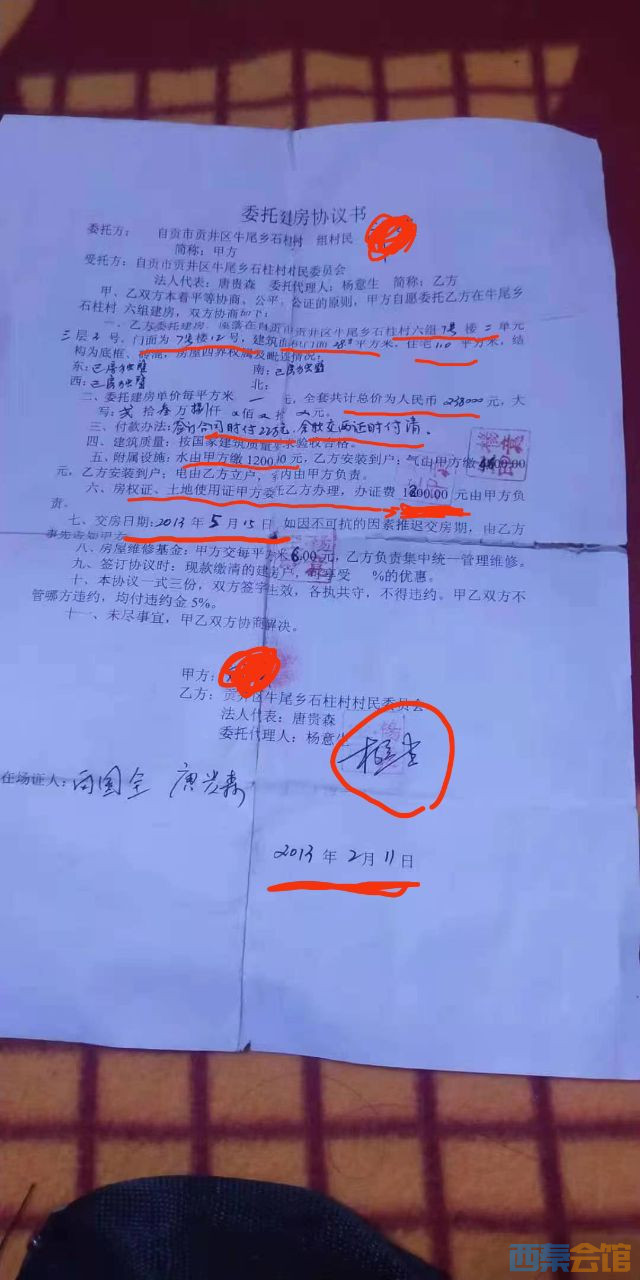 委托建房协议书
委托方： 自贡市贡井区牛尾乡石柱村 组村民
简称：甲方
受托方：自贡市贡井区牛尾乡石柱村村民委员会
法人代表：唐贵森 委托代理人：杨意生 简称：乙方
甲、乙双方本着平等协商、公平、公证的原则，甲方自愿委托乙方在牛尾乡
石柱村 六组建房，双方协商如下：
一、乙方委托建房，座落在自贡市贡井区牛尾乡石柱村六组7号楼二单元
三层2号，门面为7号楼12号，建筑面积门面 平方米，住宅110平方米，结
构为底框、砖混，房屋四界权属及毗连情况：
东：已房独壁 南：已房独壁
西：已房独壁 北：
二、委托建房单价每平方米 一 元，全套共计总价为人民币238000元，大
写：贰拾叁万捌仟 佰 拾 元。
三、付款办法：签订合同时付22万元，余款交两证时付清。
四、建筑质量：按国家建筑质量要求验收合格。
五、附属设施：水由甲方缴1200.00元，乙方安装到户；气由甲方缴 00.00
元，乙方安装到户；电由乙方立户，室内由甲方负责。
六、房权证、土地使用证甲方委托乙方办理，办证费1800.00元由甲方负
责。
七、交房日期：2013年5月15日，如因不可抗的因素推迟交房期，由乙方
事先告知甲方。
八、房屋维修基金：甲方交每平方米6.00元，乙方负责集中统一管理维修。
九、签订协议时：现款缴清的建房户，可享受 %的优惠。
十、本协议一式三份，双方签字生效，各执共守，不得违约。甲乙双方不
管哪方违约，均付违约金5%。
十一、未尽事宜，甲乙双方协商解决。
甲方：
乙方：贡井区牛尾乡石柱村村民委员会
法人代表：唐贵森
委托代理人：杨意生
在场证人： 唐贵森
2013年2月11日
西秦会馆